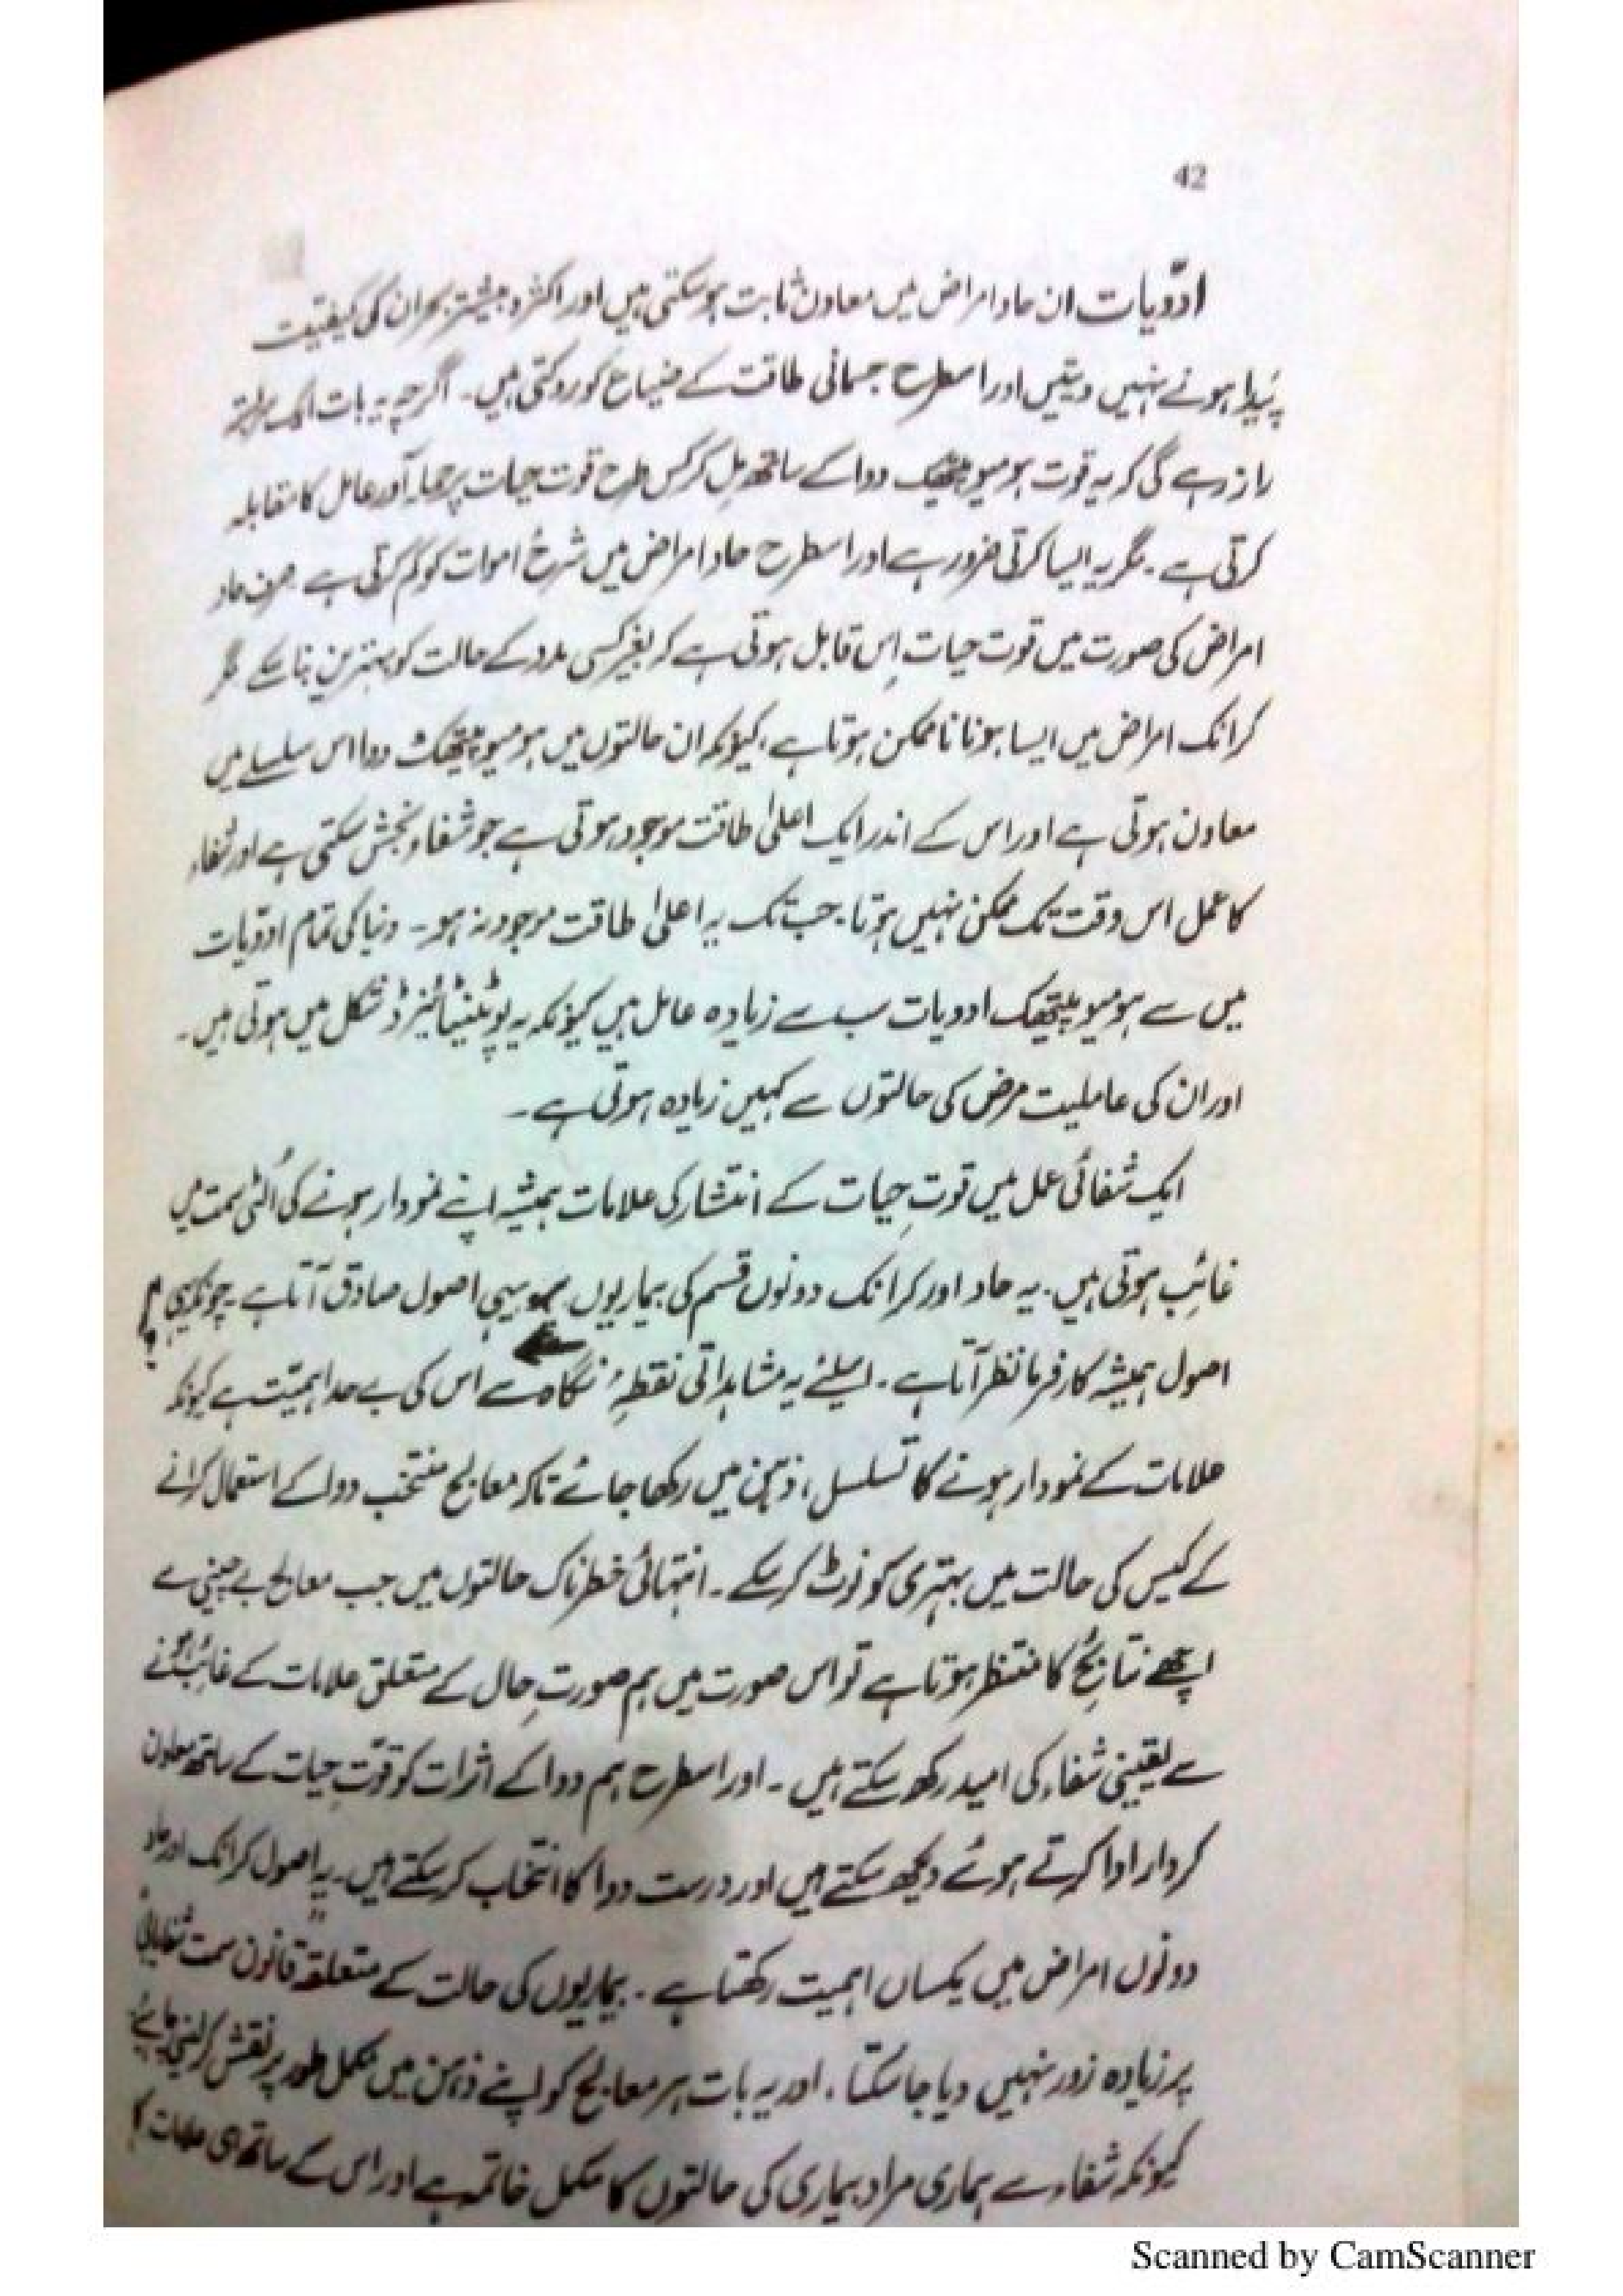 42
ادوّیات ان حاد امراض میں معاون ثابت ہو سکتی ہیں اور اکثر و بیشتر بحران کی کیفیت
پَیدا ہونے نہیں دیتیں اور اسطرح جسمانی طاقت کے ضیاع کو روکتی ہیں۔ اگرچہ یہ بات ایک سربستہ
راز رہے گی کہ یہ قوت ہومیوپیتھک دوا کے ساتھ مِل کر کس طرح قوت حیات پر حملہ آور عامل کا مقابلہ
کرتی ہے۔ مگر یہ ایسا کرتی ضرور ہے اور اسطرح حاد امراض میں شرحُ اموات کو کم کرتی ہے صرف حاد
امراض کی صورت میں قوت حیات اِس قابل ہوتی ہے کہ بغیر کسی مدد کے حالت کو بہترین بنا سکے مگر
کرانک امراض میں ایسا ہونا ناممکن ہوتا ہے، کیونکہ ان حالتوں میں ہومیوپیتھک دوا اس سلسلے میں
معاون ہوتی ہے اور اس کے اندر ایک اعلیٰ طاقت موجود ہوتی ہے جو شفاء بخش سکتی ہے اور شفاء
کا عمل اس وقت تک ممکن نہیں ہوتا۔ جب تک یہ اعلیٰ طاقت موجود نہ ہو۔ دنیا کی تمام ادوّیات
میں سے ہومیوپیتھک ادویات سب سے زیادہ عامل ہیں کیونکہ یہ پوٹینٹائیزڈ شکل میں ہوتی ہیں۔
اور ان کی عاملیت مرض کی حالتوں سے کہیں زیادہ ہوتی ہے۔
ایک شفائی عمل میں قوتِ حیات کے انتشار کی علامات ہمیشہ اپنے نمودار ہونے کی اُلٹی سمت میں
غائب ہوتی ہیں۔ یہ حاد اور کرانک دونوں قسم کی بیماریوں یہی اصول صادق آتا ہے۔ چونکہ یہی
اصول ہمیشہ کارفرما نظر آتا ہے۔ اسلیئے یہ مشاہداتی نقطۂ نگاہ سے اس کی بے حد اہمیّت ہے کیونکہ
علامات کے نمودار ہونے کا تسلسل، ذہن میں رکھا جائے تاکہ معالج منتخب دوا کے استعمال کرانے
کے کیس کی حالت میں بہتری کو نوٹ کر سکے۔ انتہائی خطرناک حالتوں میں جب معالج بے چینی سے
اچھے نتائج کا منتظر ہوتا ہے تو اس صورت میں ہم صورتِ حال کے متعلق علامات کے غائب ہونے
سے یقینی شفاء کی امید رکھ سکتے ہیں۔ اور اسطرح ہم دوا کے اثرات کو قوّتِ حیات کے ساتھ معاون
کردار ادا کرتے ہوئے دیکھ سکتے ہیں اور درست دوا کا انتخاب کر سکتے ہیں۔ یہ اصول کرانک اور حاد
دونوں امراض میں یکساں اہمیت رکھتا ہے۔ بیماریوں کی حالت کے متعلقہ "قانون سمت شفایابی"
پر زیادہ زور نہیں دیا جا سکتا، اور یہ بات ہر معالج کو اپنے ذہن میں مکمل طور پر نقش کر لینی چاہیئے
کیونکہ شفاء سے ہماری مراد بیماری کی حالتوں کا مکمل خاتمہ ہے اور اس کے ساتھ ہی علامات کا
Scanned by CamScanner